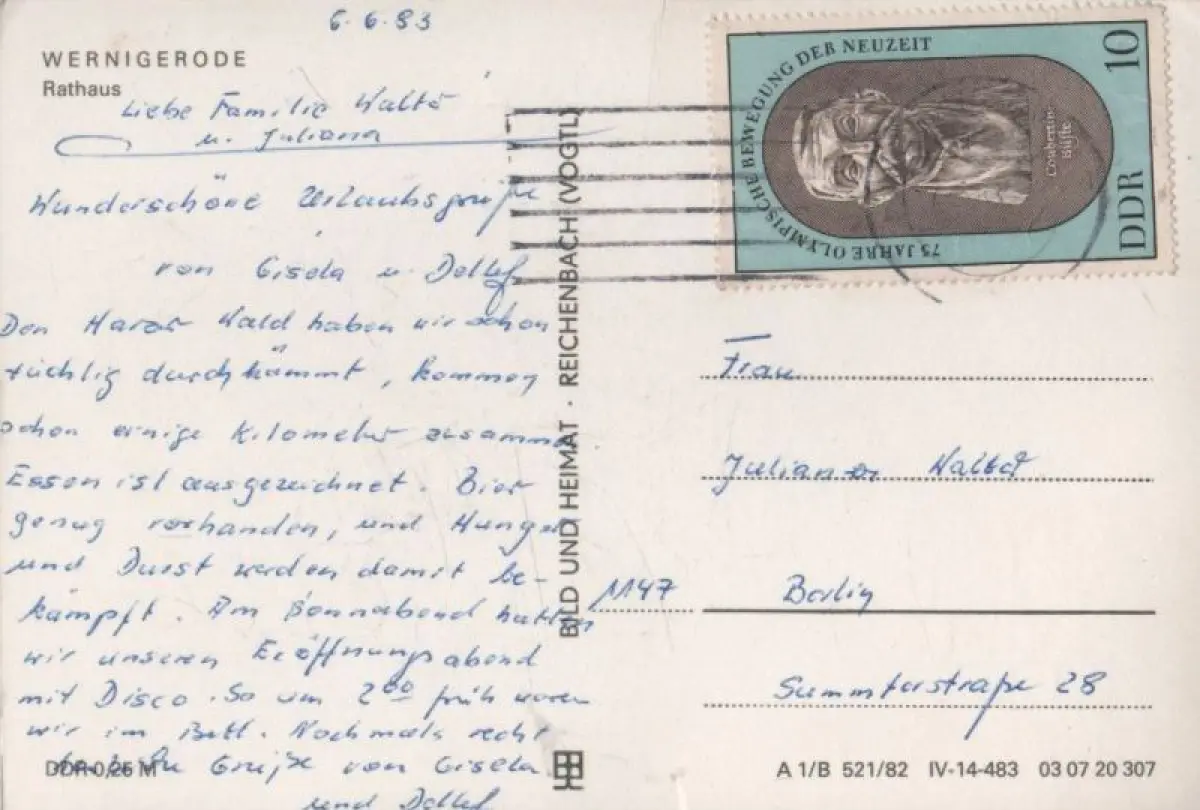 6.6.83
WERNIGERODE
Rathaus
Liebe Familie
u. Juliana
Wunderschöne Urlaubsgrüße
von Gisela u. Detlef
Den Harzer Wald haben wir schon
tüchtig durchkämmt, kommen
schon einige Kilometer zusamm
Essen ist ausgezeichnet. Bier
genug vorhanden, und Hunger
und Durst werden damit be-
kämpft. Am Sonnabend hatten
wir unseren Eröffnungsabend
mit Disco. So um 2 00 früh waren
wir im Bett. Nochmals recht
Grüße von Gisela
und Detlef
DDR 0,25 M
BILD UND HEIMAT · REICHENBACH (VOGTL)
75 JAHRE OLYMPISCHE BEWEGUNG DER NEUZEIT
Coubertin-
Büste
DDR 10
Frau
1147 Berlin
Summterstraße 28
A 1/B 521/82 IV-14-483 03 07 20 307